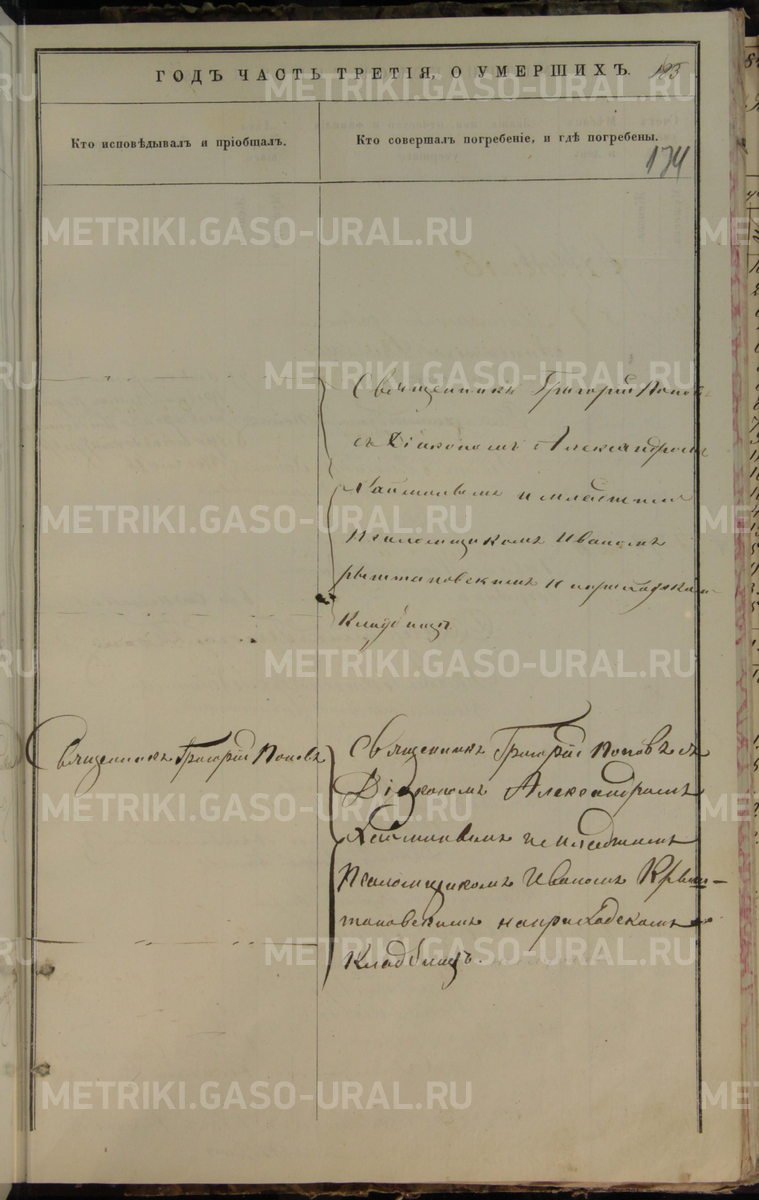 ГОДЪ ЧАСТЬ ТРЕТІЯ, О УМЕРШИХЪ.
Кто исповѣдывалъ и пріобщалъ.
Кто совершалъ погребеніе, и гдѣ погребены.
174
Священникъ Григорій Поповъ
съ Діакономъ Александромъ
и младшимъ
Псаломщикомъ Иваномъ
на приходскомъ
Кладбищѣ
Священникъ Григорій Поповъ
Священникъ Григорій Поповъ съ
Діакономъ Александромъ
и младшимъ
Псаломщикомъ Иваномъ Кры-
штановскимъ на приходскомъ
Кладбищѣ.
METRIKI.GASO-URAL.RU